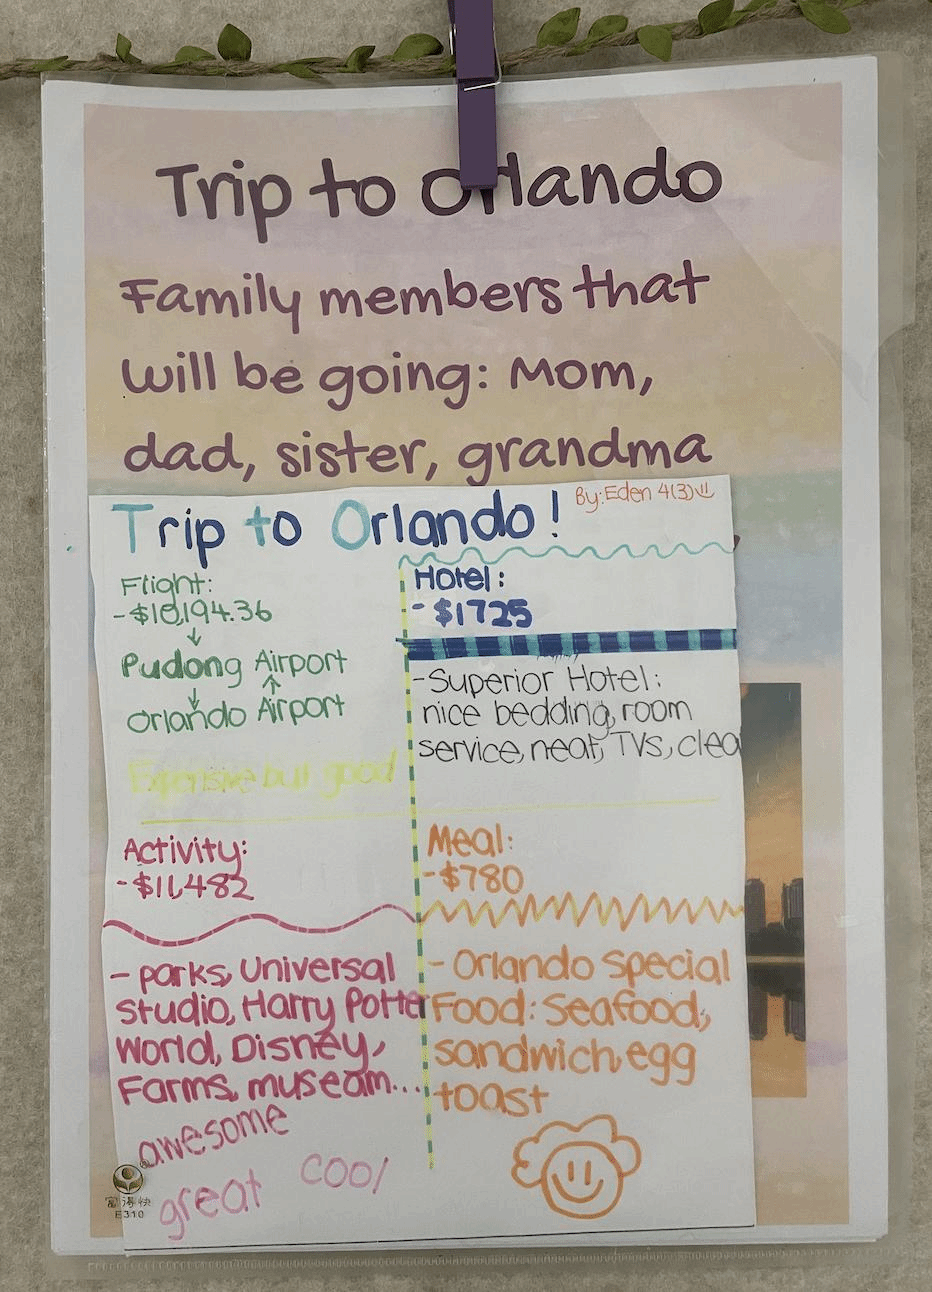 Trip to Orlando
Family members that
will be going: Mom,
dad, sister, grandma
Trip to Orlando!
By: Eden 4(3)
Flight:
-$10,194.36
Pudong Airport
Orlando Airport
Expensive but good
Hotel:
- $1725
-Superior Hotel:
nice bedding, room
service, neat, TVs, clea
Activity:
-$11,482
- parks, Universal
studio, Harry Potter
World, Disney,
Farms, museam...
awesome
great cool
Meal:
-$780
- Orlando special
Food: Seafood,
sandwich, egg
toast
®
富得快
E310